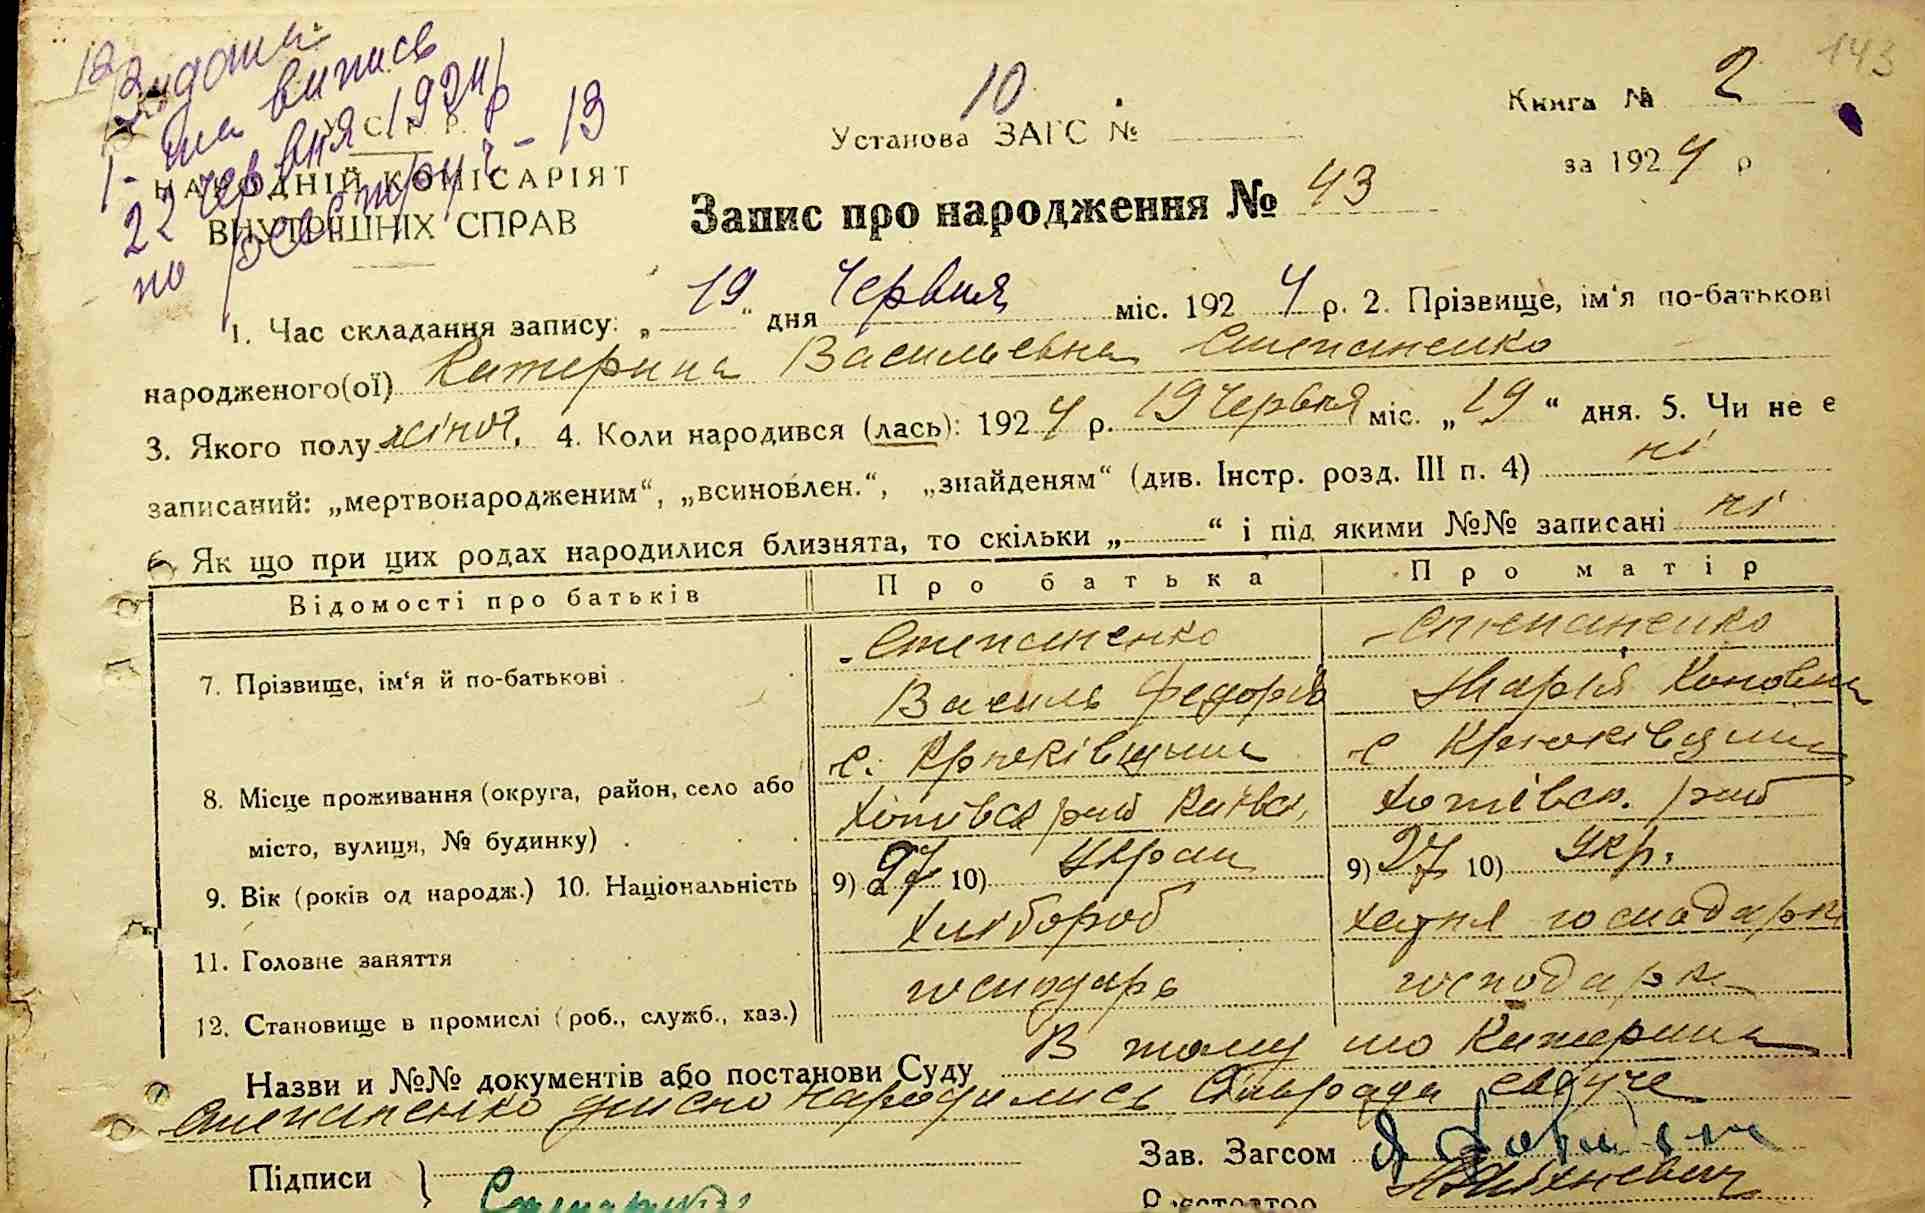 143
Видана
1-ша випись
22 червня 1924 р
по реестру ч - 13
У. С. Р. Р.
НАРОДНІЙ КОМІСАРІЯТ
ВНУТРІШНІХ СПРАВ
Установа ЗАГС № 10
Книга № 2
за 1924 р
Запис про народження № 43
1. Час складання запису: „19“ дня Червня міс. 1924 р. 2. Прізвище, ім‘я по-батькові
народженого(ої) Катерина Васильевна Степаненко
3. Якого полу жіноч. 4. Коли народився (лась): 1924 р. 19 Червня міс. „19“ дня. 5. Чи не є
записаний: „мертвонародженим“, „всиновлен.“, „знайденям“ (див. Інстр. розд. III п. 4) ні
6. Як що при цих родах народилися близнята, то скільки „ “ і під якими №№ записані ні
Відомості про батьків Про батька Про матір
7. Прізвище, ім‘я й по-батькові
Степаненко
Василь Федорів
Степаненко
Марія Кononовна
8. Місце проживання (округа, район, село або
місто, вулиця, № будинку)
с. Крюківщина
Хотівськ рай Київськ.
с Крюківщина
Хотівск. рай
9. Вік (років од народж.) 10. Національність 9) 27 10) украи 9) 27 10) Укр.
11. Головне заняття Хлібороб хатня господарк
12. Становище в промислі (роб., служб., хаз.) господарь господарка
Назви и №№ документів або постанови Суду В тому що Катерина
Степаненко дійсно народилась Сільрада свідче
Підписи
Зав. Загсом